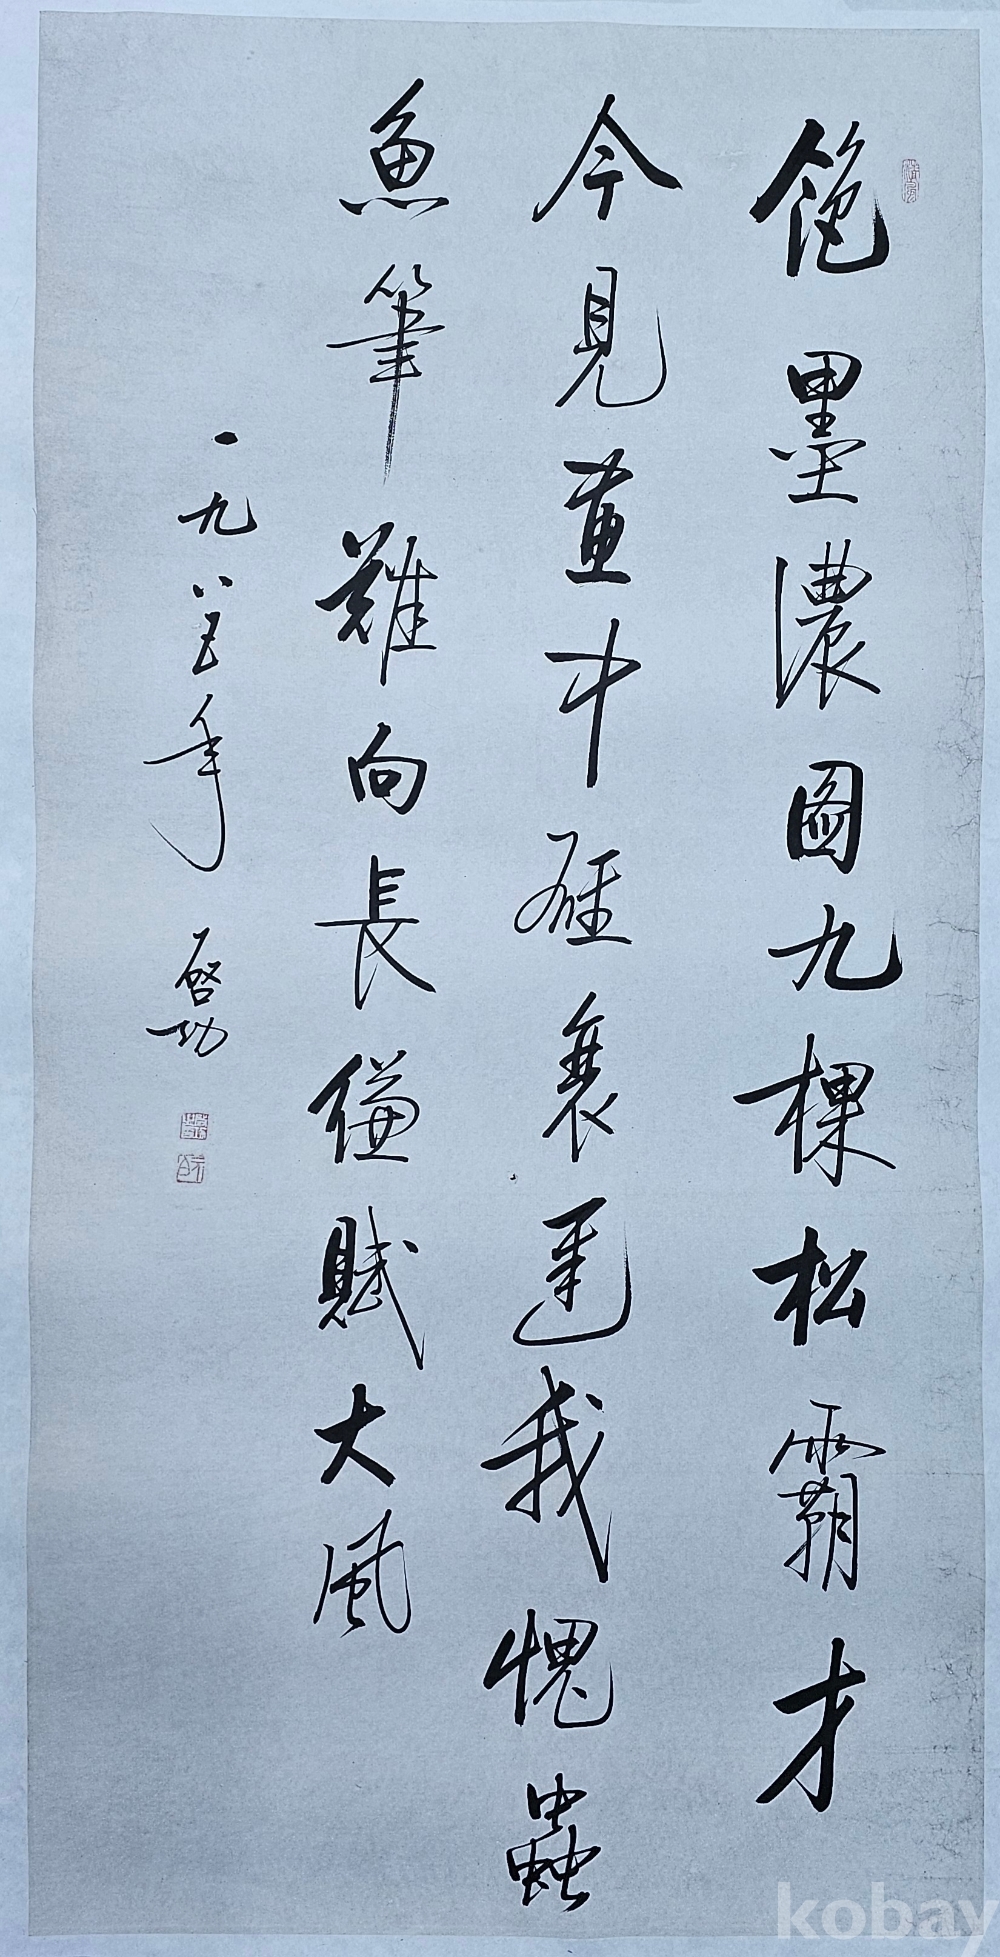 飽墨濃圖九棵松霸才
今見畫中雄衰遲我愧蟲
魚筆難向長縑賦大風
一九八五年 啟功
kobay